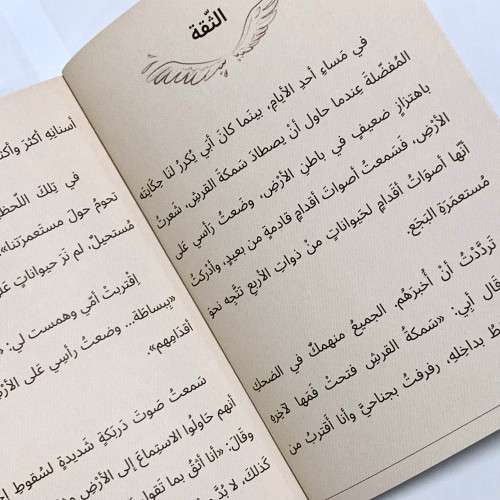 الثّقة
في مَساءِ أحدِ الأيامِ، بينَما كانَ أبي يُكرّرُ لنَا حِكايَتَه
المُفضّلةَ عِندما حاولَ أنْ يصطادَ سَمكةَ القرشِ، شَعرتُ
باهتزازٍ ضعيفٍ في باطنِ الأرْضِ، وضعتُ رأسِي عَلى
الأرْضِ، فَسَمعتُ أصواتَ أقدامٍ قادمةٍ من بعيدٍ، وأدْركتُ
أنّها أصوَاتُ أقدامٍ لحَيواناتٍ منْ ذواتِ الأربعِ تتّجه نحوَ
مُستعمَرَةِ البَجَعِ.
تردّدْتُ أنْ أُخبرَهُم. الجميعُ منهمكٌ في الضحكِ
قالَ أبِي: «سَمكةُ القرشِ فتحتْ فَمَها لآخِرِهِ
بداخِلِهِ، رفرفتُ بجناحيَّ وأنا أقتربُ من
أسنانِه أكثرَ وأكثَ
في تلكَ اللّحظَ
تحومُ حولَ مستعمرَتنا»
مُستحيلٌ، لم نَرَ حيواناتٍ
اِقتربتْ أمّي وهمست لي:
«ببساطَة... وضعتُ رأسِي عَلى الأرْضِ
أقدَامِهم».
سَمعتُ صَوتَ دَربَكةٍ شَديدةٍ لسُقوطِ
أنهم حَاولُوا الاستِماعَ إلى الأرْضِ
وقَالَ: «أنا أثقُ بما تَقولُ
كذلكَ، لا بُدّ